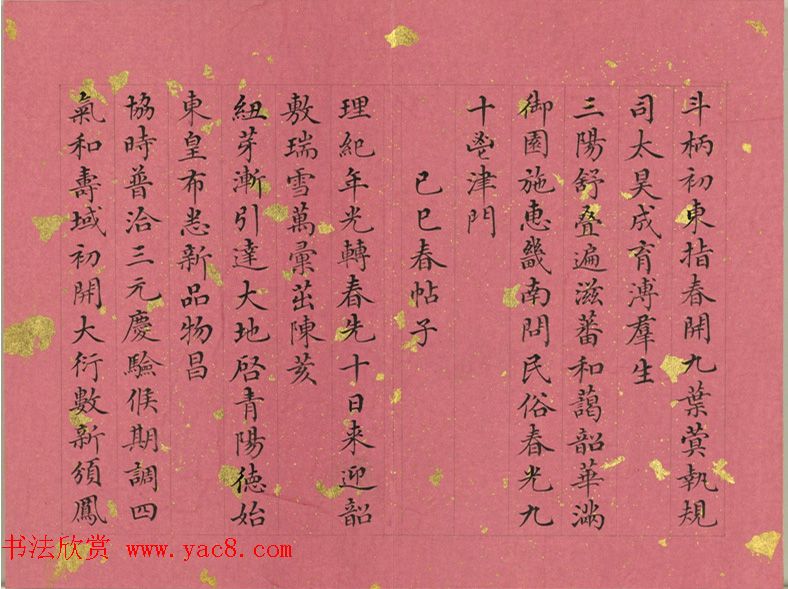 斗柄初東指春開九葉蓂執規
司太昊成育溥羣生
三陽舒叠遍滋蕃和藹韶華滿
御園施惠畿南問民俗春光九
十鬯津門
己巳春帖子
理紀年光轉春先十日来迎韶
敷瑞雪萬彙茁陳荄
紐芽漸引達大地启青陽德始
東皇布㤙新品物昌
協時普洽三元慶驗候期調四
氣和壽域初開大衍數新頒鳳
书法欣赏 www.yac8.com